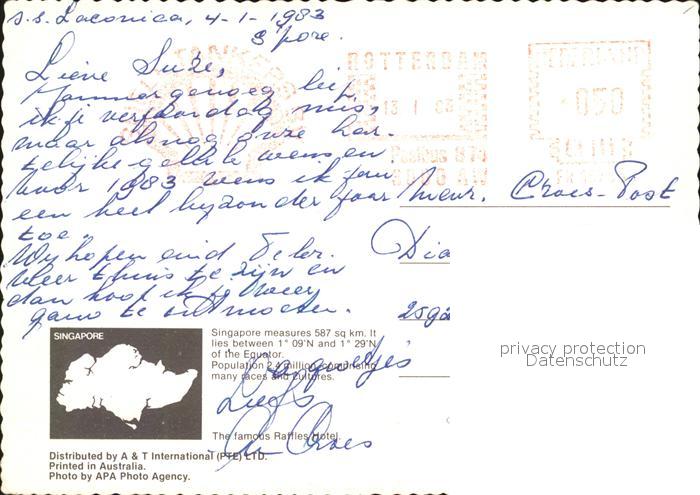 s.s. Laconica, 4-1-1983
S'pore.
ROTTERDAM
NEDERLAND
Lieve Suze,
Jammer genoeg liep
ik je verjaardag mis,
13 I 83
050
maar alsnog onze har-
telijke gelukwensen en
Postbus 870
voor 1983 wens ik jou
een heel bijzonder jaar
Mevr. Croes-Post
toe.
Wij hopen eind Febr.
weer thuis te zijn en
dan hoop ik je weer
gauw te ontmoeten.
SINGAPORE
Singapore measures 587 sq km. It
lies between 1° 09'N and 1° 29'N
of the Equator.
Population 2.4 million comprising
many races and cultures.
Liefs
The famous Raffles Hotel.
Croes
Distributed by A & T International (PTE) LTD.
Printed in Australia.
Photo by APA Photo Agency.
privacy protection
Datenschutz